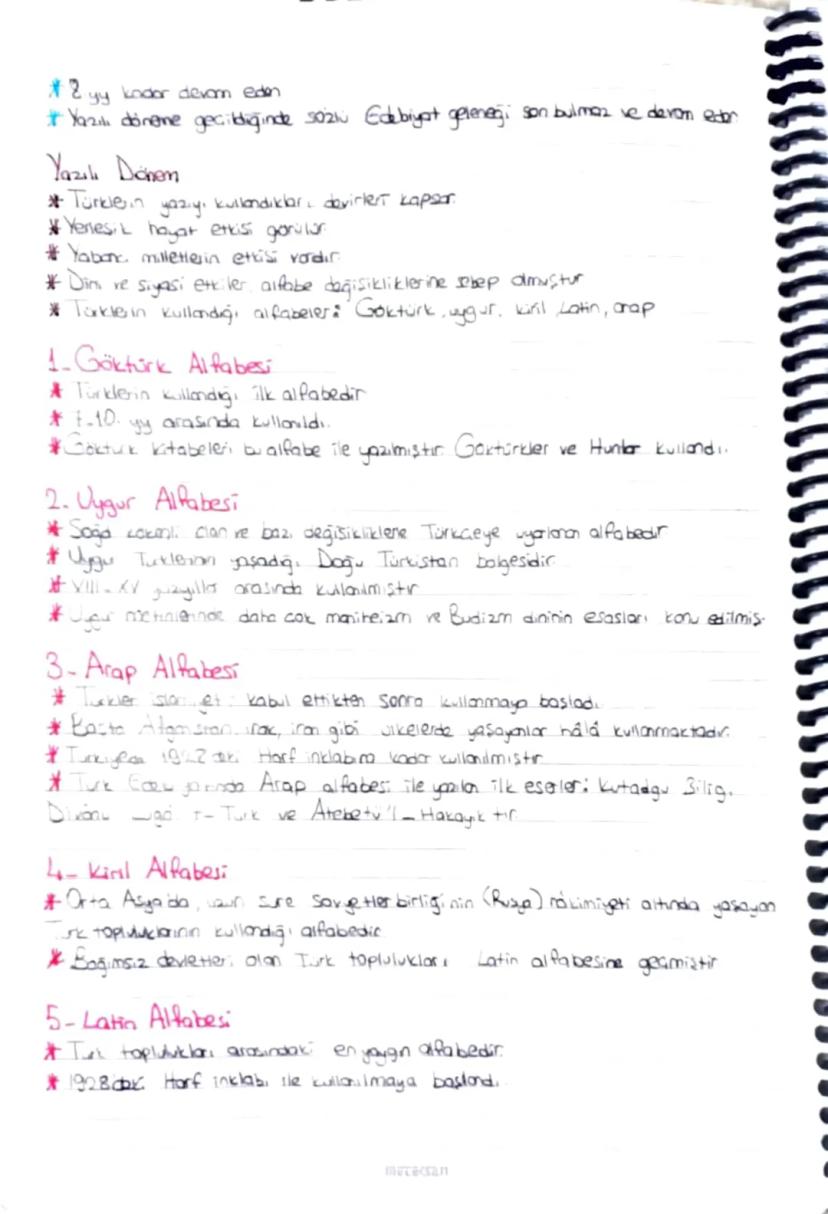 * 8 yy kadar devam eden
* Yazılı döneme geçildiğinde sözlü Edebiyat geleneği son bulmaz ve devam eder
Yazılı Dönem
* Türklerin yazıyı kullandıkları devirleri kapsar.
* Yerleşik hayat etkisi görülür.
* Yabancı milletlerin etkisi vardır.
* Dini ve siyasi etkiler alfabe değişikliklerine sebep olmuştur
* Türklerin kullandığı alfabeler: Göktürk, uygur, kiril, Latin, arap
1- Göktürk Alfabesi
* Türklerin kullandığı ilk alfabedir
* 7-10. yy arasında kullanıldı.
* Göktürk kitabeleri bu alfabe ile yazılmıştır. Göktürkler ve Hunlar kullandı.
2. Uygur Alfabesi
* Soğd kökenli olan ve bazı değişikliklerle Türkçeye uyarlanan alfabedir
* Uygur Türklerinin yaşadığı Doğu Türkistan bölgesidir.
* VIII - XV yüzyıllar arasında kullanılmıştır
* Uygur metinlerinde daha çok maniheizm ve Budizm dininin esasları konu edilmiş.
3- Arap Alfabesi
* Türkler islamiyeti kabul ettikten sonra kullanmaya başladı.
* Başta Afganistan, ırak, iran gibi ülkelerde yaşayanlar hâlâ kullanmaktadır.
* Harf inklabına kadar kullanılmıştır
* Türk Arap alfabesi ile yazılan ilk eserler: Kutadgu Bilig,
Divanu t-Türk ve Atebetü'l-Hakayık tır
4- Kiril Alfabesi
* Orta Asya'da, uzun süre Sovyetler birliği'nin (Rusya) hâkimiyeti altında yaşayan
Türk topluluklarının kullandığı alfabedir.
* Bağımsız devletleri olan Türk toplulukları Latin alfabesine geçmiştir
5- Latin Alfabesi
* Türk toplulukları arasındaki en yaygın alfabedir.
* 1928'deki Harf inklabı ile kullanılmaya başlandı.